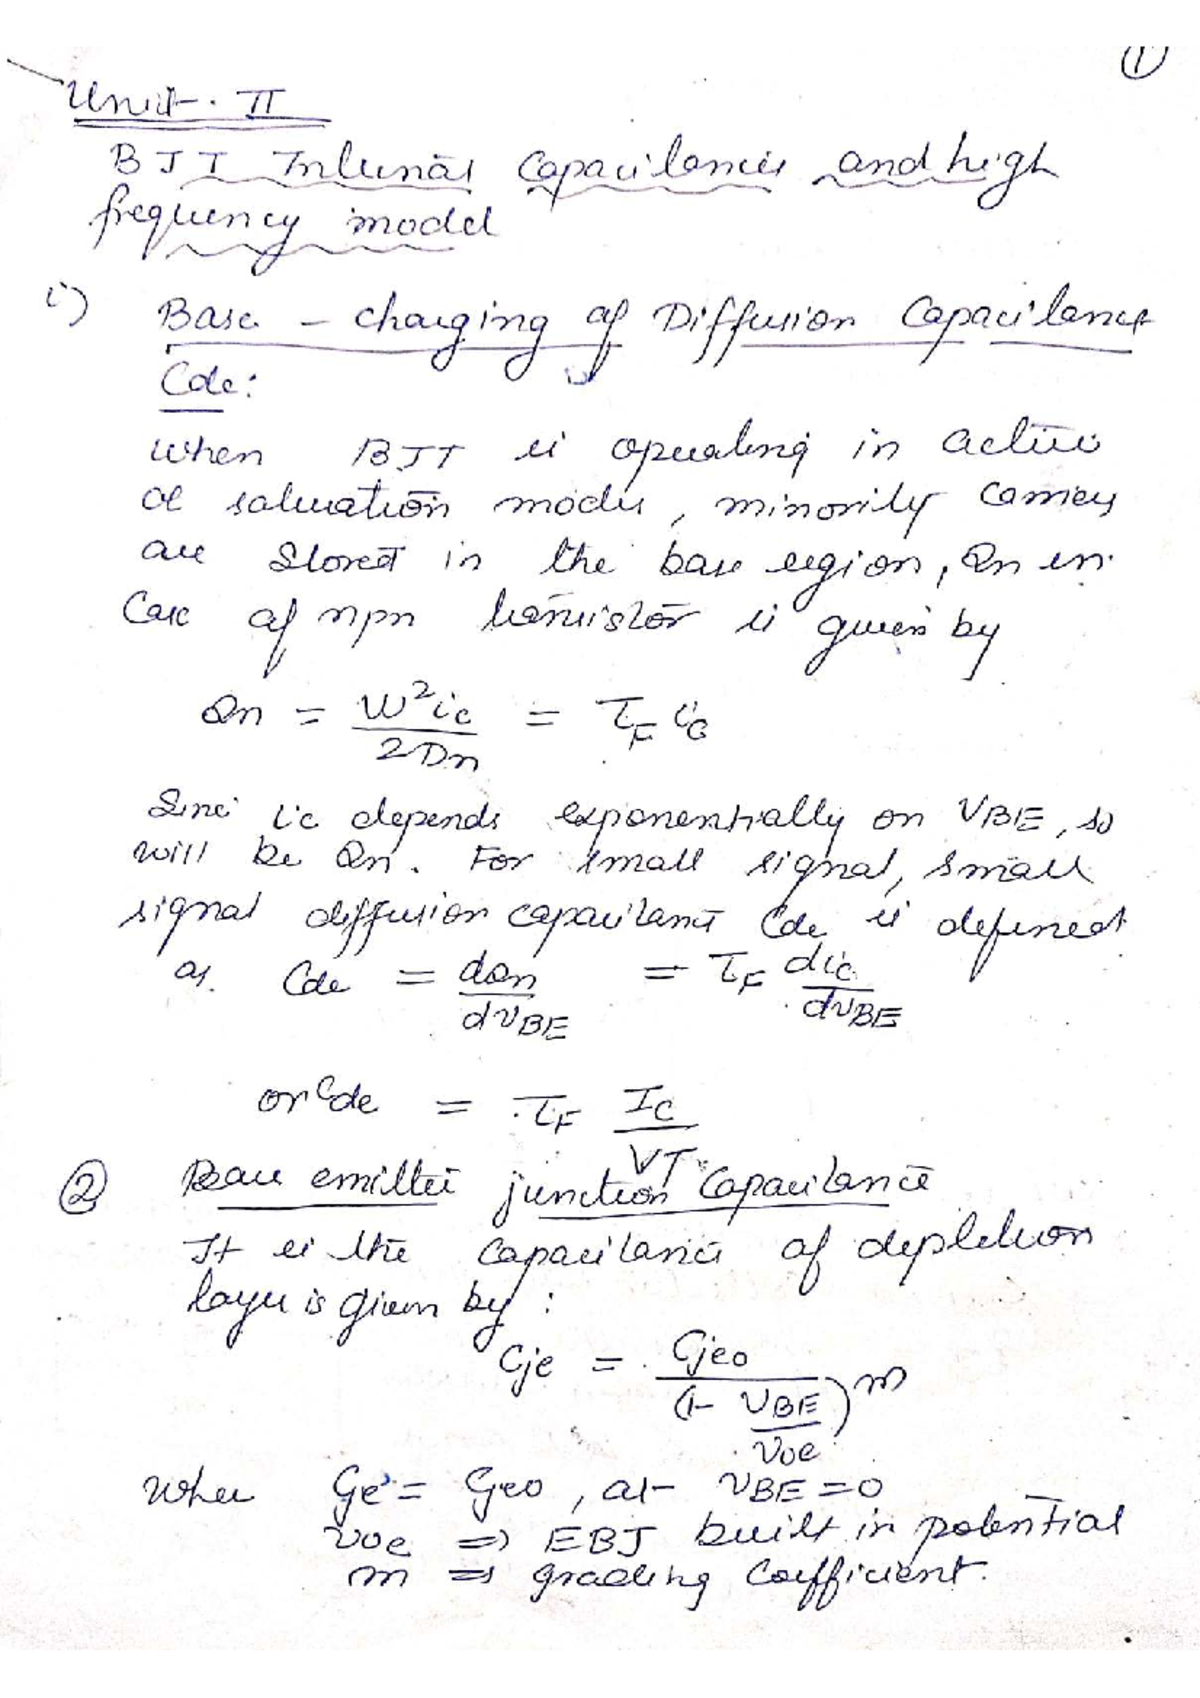 ①
Unit. II
BJT Internal Capacitances and high
frequency model
i) Base - charging of Diffusion Capacitance
Cde:
When BJT is operating in active
or saturation modes, minority carriers
are stored in the base region, Qn in
case of npn transistor is given by
Qn = W²ic / 2Dn = τF ic
Since ic depends exponentially on VBE, so
will be Qn. For small signal, small
signal diffusion capacitance Cde is defined
as. Cde = dQn / dVBE = τF dic / dVBE
or Cde = τF IC / VT
② Base emitter junction Capacitance
It is the capacitance of depletion
layer is given by :
Cje = Cjeo / (1 - VBE / Voe)^m
Where Cje = Cjeo, at VBE = 0
Voe ⇒ EBJ built in potential
m ⇒ grading coefficient.